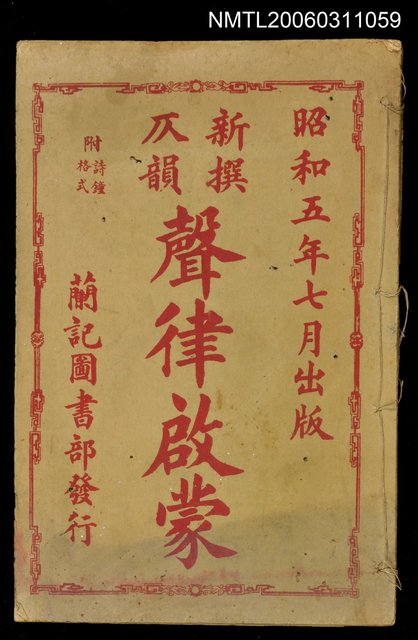 NMTL20060311059
昭和五年七月出版
新撰
仄韻
聲律啟蒙
附詩鐘
格式
蘭記圖書部發行